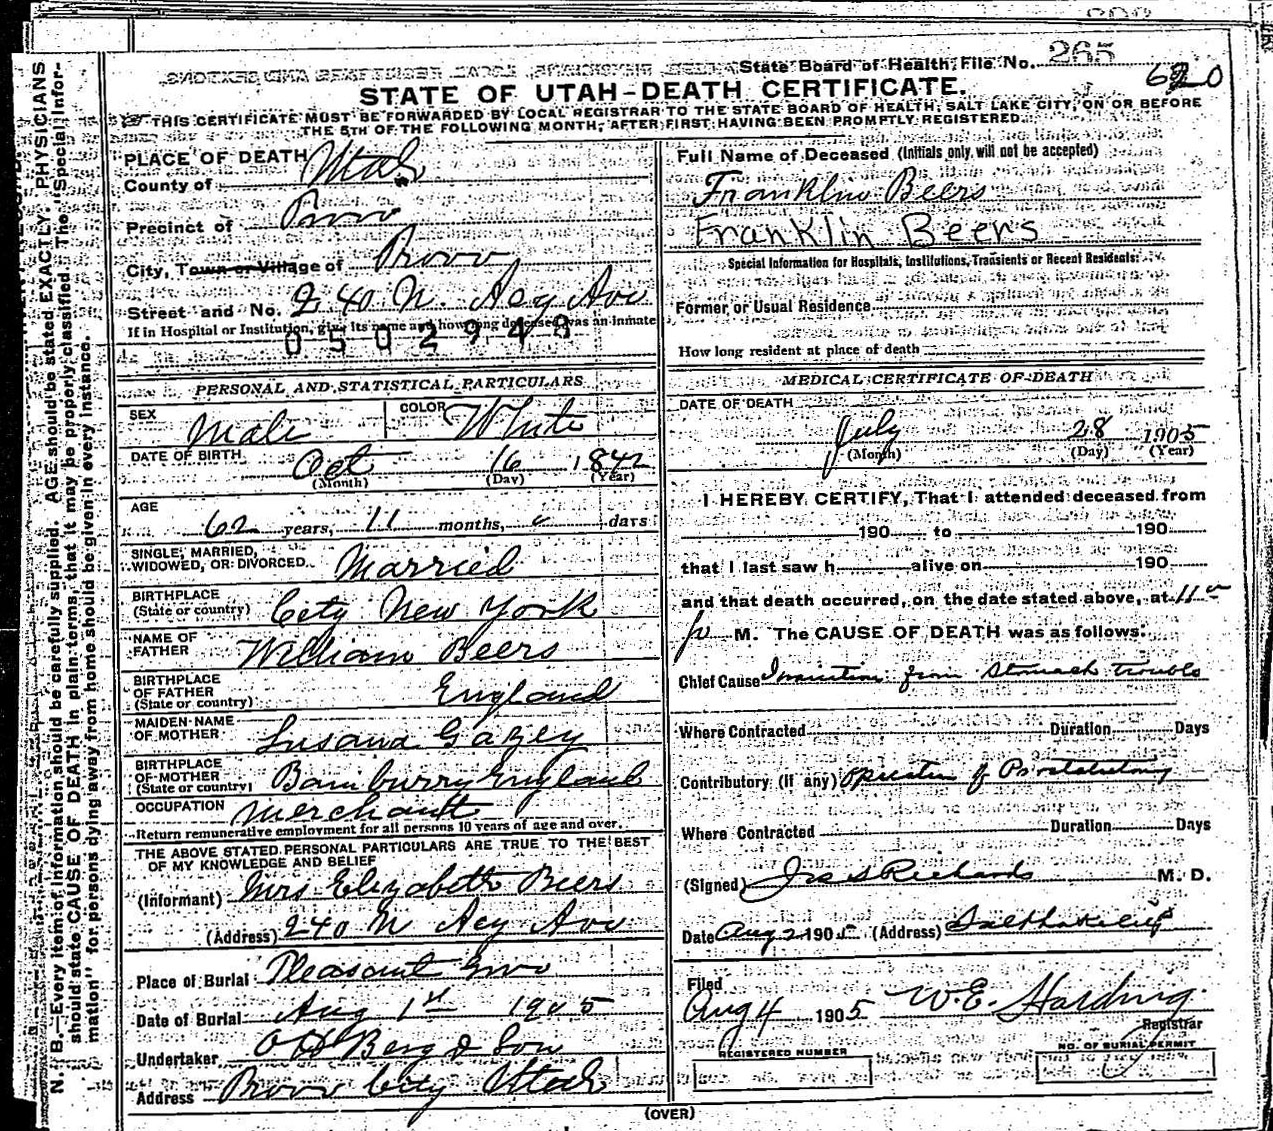 State Board of Health File No. 265
620
STATE OF UTAH-DEATH CERTIFICATE.
THIS CERTIFICATE MUST BE FORWARDED BY LOCAL REGISTRAR TO THE STATE BOARD OF HEALTH, SALT LAKE CITY, ON OR BEFORE
THE 5TH OF THE FOLLOWING MONTH, AFTER FIRST HAVING BEEN PROMPTLY REGISTERED.
N. B.—Every item of information should be carefully supplied. AGE should be stated EXACTLY. PHYSICIANS
should state CAUSE OF DEATH in plain terms, that it may be properly classified. The "Special Infor-
mation" for persons dying away from home should be given in every instance.
PLACE OF DEATH
County of Utah
Precinct of Provo
City, Town or Village of Provo
Street and No. 240 N. Acy Ave
If in Hospital or Institution, give its name and how long deceased was an inmate
0502948
PERSONAL AND STATISTICAL PARTICULARS
SEX Male COLOR White
DATE OF BIRTH Oct 16 1842
(Month) (Day) (Year)
AGE
62 years, 11 months, days
SINGLE, MARRIED,
WIDOWED, OR DIVORCED Married
BIRTHPLACE
(State or country) City New York
NAME OF
FATHER William Beers
BIRTHPLACE
OF FATHER
(State or country) England
MAIDEN NAME
OF MOTHER Susana Gazey
BIRTHPLACE
OF MOTHER
(State or country) Bamburry England
OCCUPATION Merchant
Return remunerative employment for all persons 10 years of age and over.
THE ABOVE STATED PERSONAL PARTICULARS ARE TRUE TO THE BEST
OF MY KNOWLEDGE AND BELIEF
(Informant) Mrs Elizabeth Beers
(Address) 240 N Acy Ave
Place of Burial Pleasant Grove
Date of Burial Aug 1st 1905
Undertaker O H Berg & Son
Address Provo City Utah
Full Name of Deceased (Initials only will not be accepted)
Franklin Beers
Franklin Beers
Special Information for Hospitals, Institutions, Transients or Recent Residents:
Former or Usual Residence
How long resident at place of death
MEDICAL CERTIFICATE OF DEATH
DATE OF DEATH
July 28 1905
(Month) (Day) (Year)
I HEREBY CERTIFY, That I attended deceased from
190 to 190
that I last saw h alive on 190
and that death occurred, on the date stated above, at 11
P M. The CAUSE OF DEATH was as follows:
Chief Cause Inanition from Stomach trouble
Where Contracted Duration Days
Contributory (if any) Operation of Prostatectomy
Where Contracted Duration Days
(Signed) Richards M. D.
Date Aug 2 1905 (Address) Salt Lake City
Filed
Aug 4 1905 W.E. Harding
Registrar
REGISTERED NUMBER
NO. OF BURIAL PERMIT
(OVER)